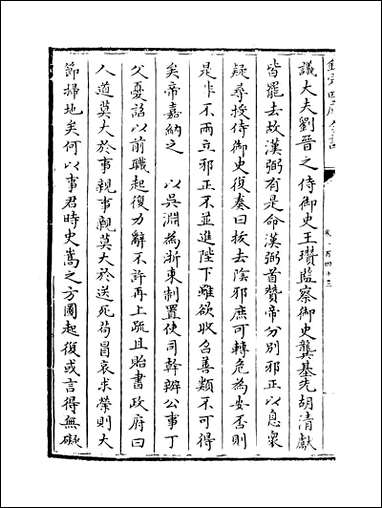 議大夫劉晉之侍御史王瓚監察御史龔基先胡清獻
皆罷去故漢弼有是命漢弼首贊帝分別邪正以息衆
疑尋授侍御史復奏曰拔去隂邪庶可轉危為安否則
是非不兩立邪正不並進陛下雖欲收召善類不可得
矣帝嘉納之 以吴淵為浙東制置使司幹辦公事丁
父憂詔以前職起復力辭不許再上疏且貽書政府曰
人道莫大於事親事親莫大於送死茍冒哀求榮則大
節掃地矣何以事君時史嵩之方圖起復或言得無礙